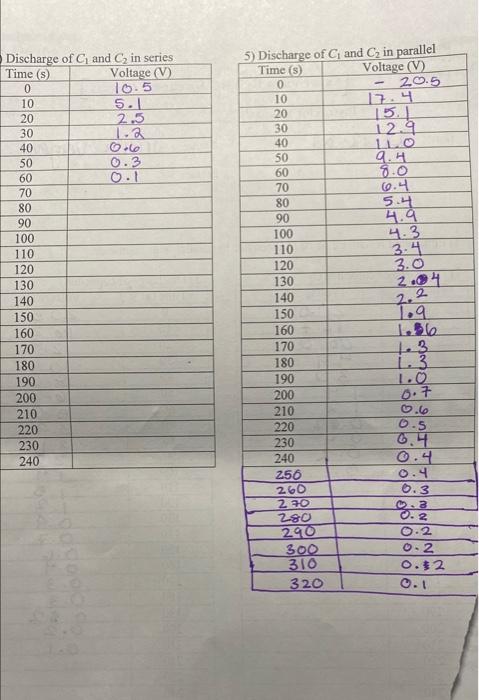 Discharge of C₁ and C₂ in series
Time (s) Voltage (V)
0 10.5
10 5.1
20 2.5
30 1.2
40 0.6
50 0.3
60 0.1
70
80
90
100
110
120
130
140
150
160
170
180
190
200
210
220
230
240
5) Discharge of C₁ and C₂ in parallel
Time (s) Voltage (V)
0 - 20.5
10 17.4
20 15.1
30 12.9
40 11.0
50 9.4
60 8.0
70 6.4
80 5.4
90 4.9
100 4.3
110 3.4
120 3.0
130
140 2.2
150 1.9
160
170 1.3
180 1.3
190 1.0
200 0.7
210 0.6
220 0.5
230 0.4
240 0.4
250 0.4
260 0.3
270
280 0.2
290 0.2
300 0.2
310
320 0.1